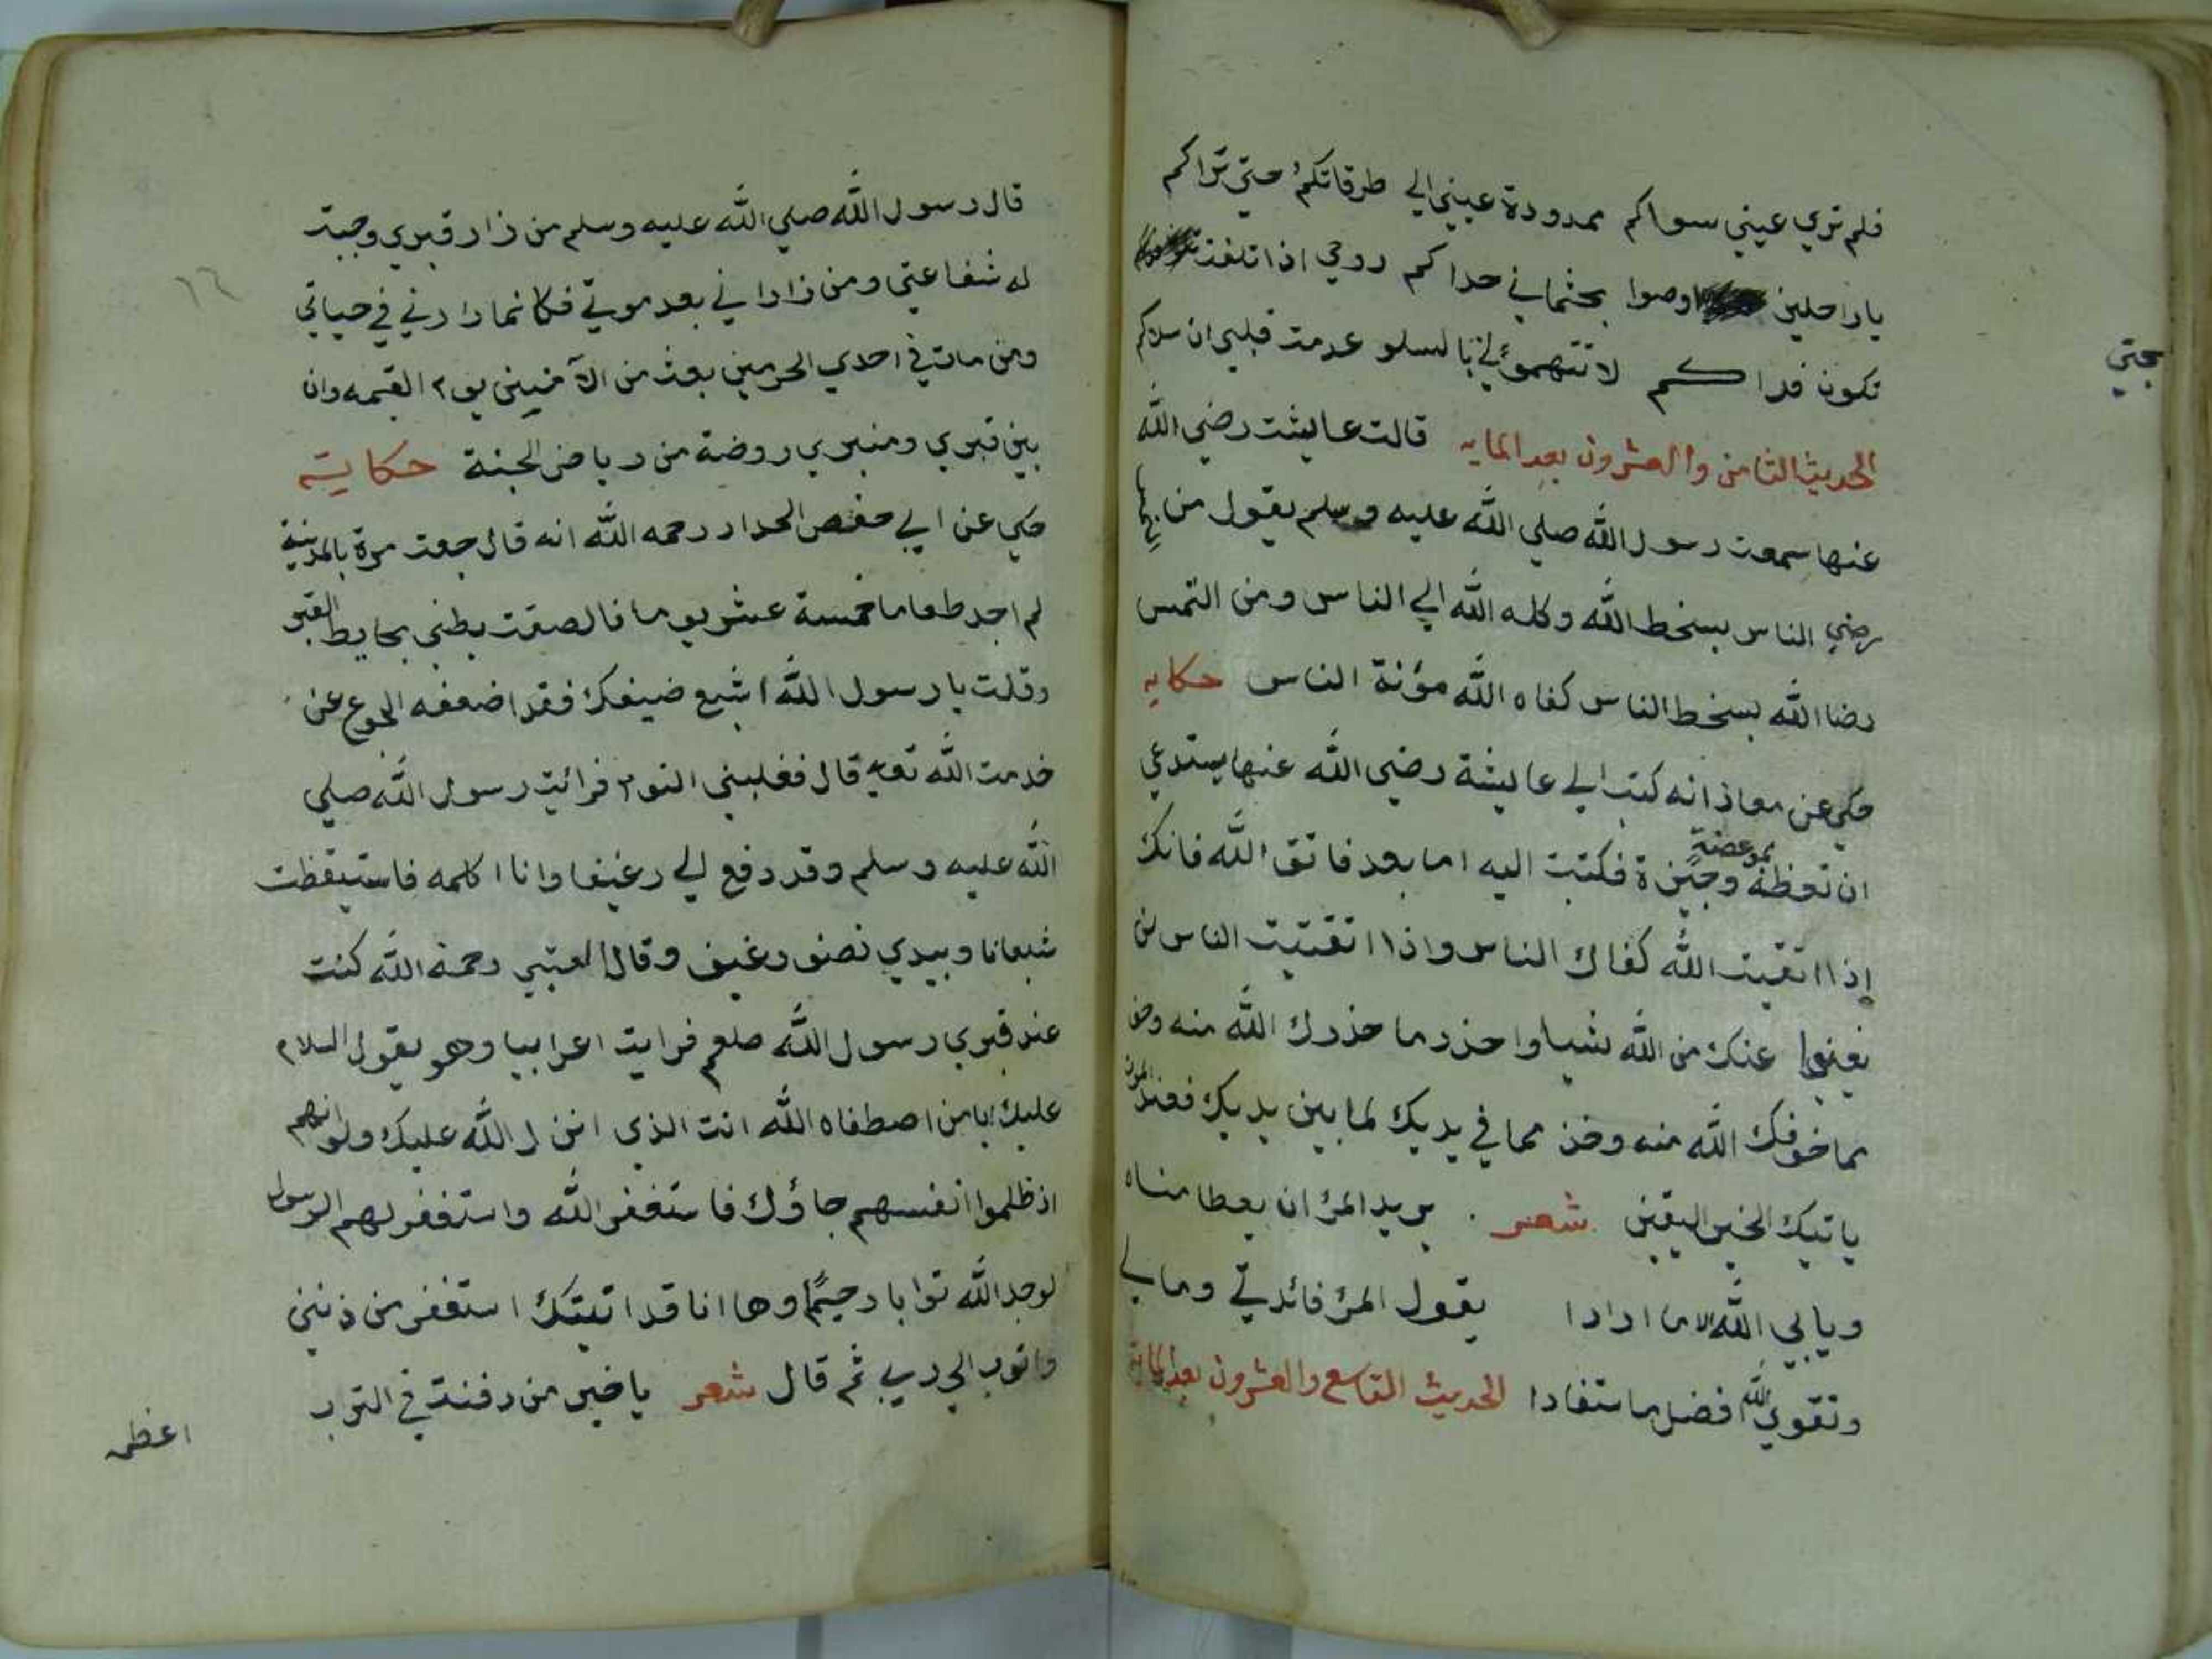 فلم تري عيني سواكم ممدودة عيني الي طرقاتكم حتي تراكم
يا راحلين اوصوا بجثماني حداكم روحي اذا تلفت
بجتي
تكون فداكم لا تتهموني بالسلو عدمت قلبي ان سلاكم
الحديث الثامن والعشرون بعد المايه قالت عايشت رضي الله
عنها سمعت رسول الله صلي الله عليه وسلم يقول من
رضي الناس بسخط الله وكله الله الي الناس ومن التمس
رضا الله بسخط الناس كفاه الله مؤنة الناس حكايه
حكي عن معاذ انه كتب الي عايشة رضي الله عنها يستدعي
ان تعظه بموعضة وجيزة فكتبت اليه اما بعد فاتق الله فانك
إذا اتقيت الله كفاك الناس واذا اتقيتت الناس لن
يغنوا عنك من الله شيا واحذر ما حذرك الله منه وخف
مما خوفك الله منه وخذ مما في يديك لما بين يديك فعند الموت
ياتيك الخبر اليقين شعر يريد المرؤ ان يعطا مناه
ويابي الله الا ما ارادا يقول المرؤ فائدتي ومالي
وتقوي الله افضل ما ستفادا الحديث التاسع والعشرون بعد المائة
قال رسول الله صلي الله عليه وسلم من زار قبري وجبت
له شفاعتي ومن زاراني بعد موتي فكانما زارني في حياتي
ومن مات في احدي الحرمين بعث من الآمنين يوم القيمه وان
بين قبري ومنبري روضة من رياض الجنة حكاية
حكي عن ابي حفص الحداد رحمه الله انه قال جعت مرة بالمدينة
لم اجد طعاما خمسة عشر يوما فالصقت بطني بحايط القبر
وقلت يا رسول الله اشبع ضيفك فقد اضعفه الجوع عن
خدمت الله تعه قال فغلبني النوم فرائت رسول الله صلي
الله عليه وسلم وقد دفع لي رغيفا وانا اكلمه فاستيقظت
شبعانا وبيدي نصف رغيف وقال العتبي رحمة الله كنت
عند قبري رسول الله صلعم فرايت اعرابيا وهو يقول السلام
عليك يا من اصطفاه الله انت الذي انزل الله عليك ولو انهم
اذ ظلموا انفسهم جاؤك فاستغفر الله واستغفر لهم الرسول
لوجد الله توابا رحيمًا وها انا قد اتيتك استغفر من ذنبي
واتوب الي ربي ثم قال شعر يا خير من دفنت في الترب
اعظمه